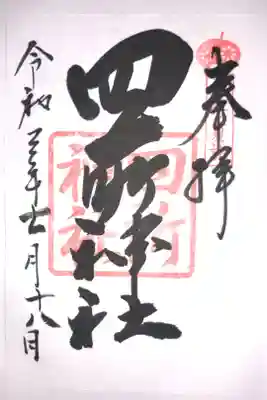 奉拝
四所神社
令和三年十一月十八日
四所
神社